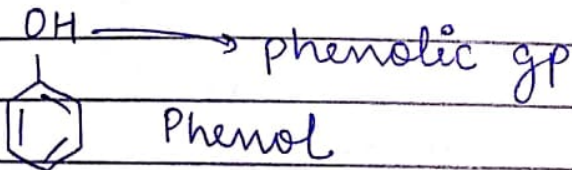 OH → phenolic gp
Phenol